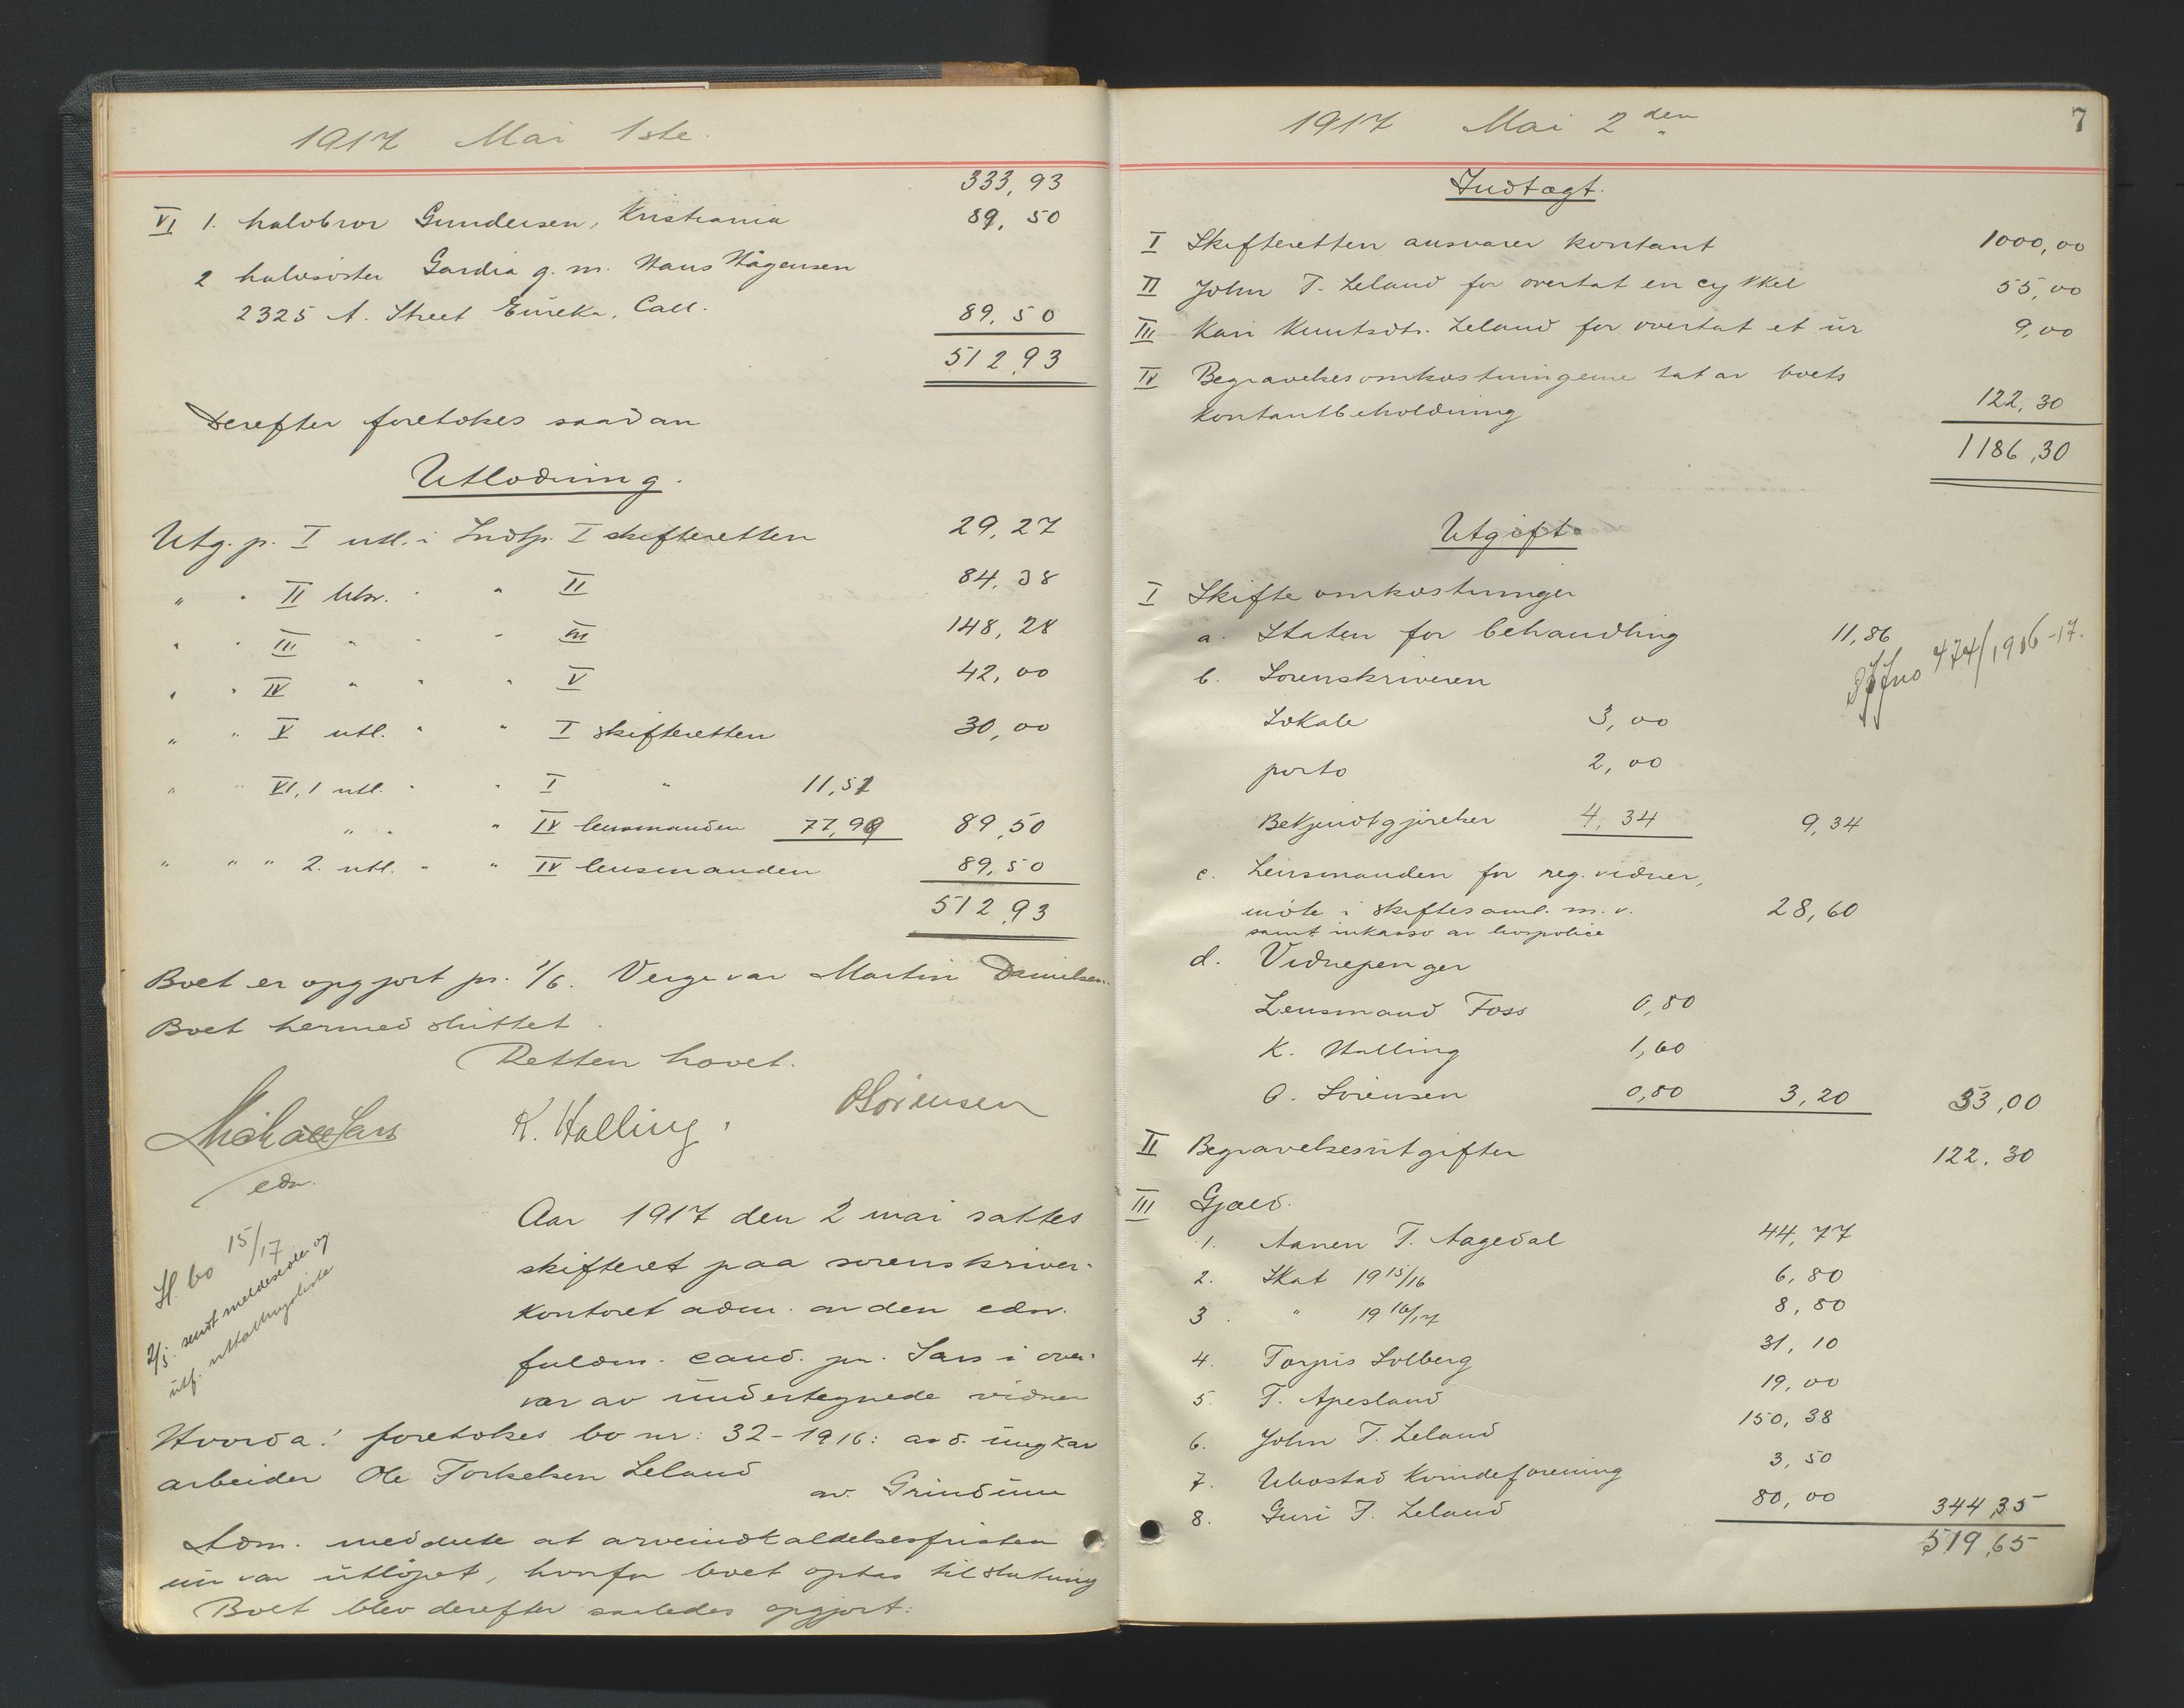 1917 Mai 1ste.
333,93
VI 1. halvbror Gundersen, Kristiania 89,50
2 halvsøster Gardia g. m. Hans Hågensen
2325 A. Street Eureka, Call. 89,50
512,93
Derefter foretokes saadan
Utlodning.
Utg. p. I utl. i Indtp. I skifteretten 29,27
" " II " " II 84,38
" " III " " " III 148,28
" " IV " " " V 42,00
" " V utl. " " I skifteretten 30,00
" " VI, 1 utl. " " I " 11,51
" " " IV lensmanden 77,99 89,50
" " " 2. utl. " " IV lensmanden 89,50
512,93
Boet er opgjort pr. 1/6. Verge var Martin Danielsen.
Boet hermed sluttet.
Retten hævet.
Michael Sars K. Halling. O Sørensen
edv.
H. bo 15/17
2/5. sendt meldeseddel og
utf. utlodningsliste
Aar 1917 den 2 mai sattes
skifteret paa sorenskriver-
kontoret adm. av den edsv.
fuldm. cand. jur. Sars i over-
vær av undertegnede vidner
Hvorda! foretokes bo nr: 32-1916: avd. ungkar
arbeider Ole Torkelsen Leland
av Grindum
Adm. meddelte at arveindkaldelsesfristen
nu var utløpet, hvorfor boet optas til slutning
Boet blev derefter saaledes opgjort:
1917 Mai 2den 7
Indtægt.
I Skifteretten ansvarer kontant 1000,00
II John T. Leland for overtat en cykkel 55,00
III Kari Knutsdtr. Leland for overtat et ur 9,00
IV Begravelsesomkostningerne tat av boets
kontantbeholdning 122,30
1186,30
Utgift.
I Skifteomkostninger
a. Staten for behandling 11,86
474/1916-17.
b. Sorenskriveren
Lokale 3,00
porto 2,00
Bekjendtgjørelser 4,34 9,34
c. Lensmanden for reg. vidner,
møte i skiftesaml. m. v. 28,60
samt inkasso av livspolice
d. Vidnepenger
Lensmand Foss 0,80
K. Halling 1,60
O. Sørensen 0,80 3,20 53,00
II Begravelsesutgifter 122,30
III Gjæld.
1. Aanen T. Aagedal 44,77
2. Skat 1915/16 6,80
3. " 1916/17 8,80
4. Torjus Solberg 31,10
5. T. Apesland 19,00
6. John T. Leland 150,38
7. Kvindeforening 3,50
8. Guri T. Leland 80,00 344,35
519,65